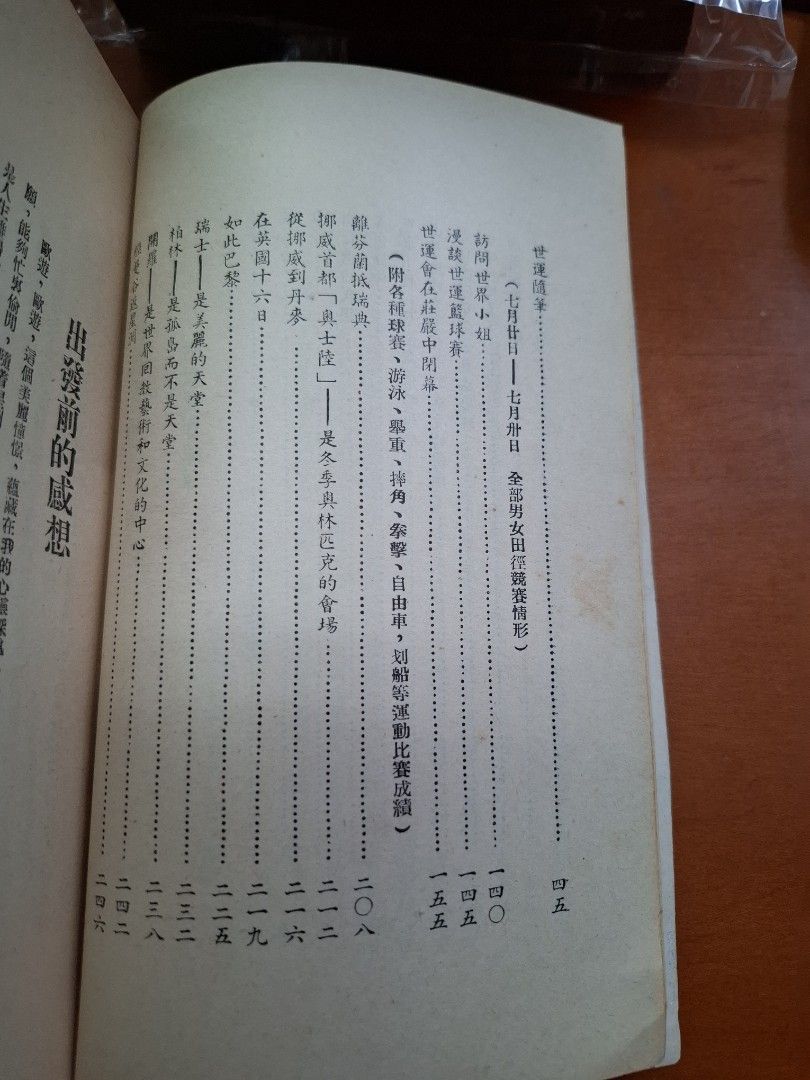 世運隨筆……………………四五
(七月廿日——七月卅日 全部男女田徑競賽情形)
訪問世界小姐……………………一四〇
漫談世運籃球賽……………………一四五
世運會在莊嚴中閉幕……………………一五五
(附各種球賽、游泳、舉重、摔角、拳擊、自由車,划船等運動比賽成績)
離芬蘭抵瑞典……………………二〇八
挪威首都「奧士陸」——是冬季奧林匹克的會場……………………二一二
從挪威到丹麥……………………二一六
在英國十六日……………………二一九
如此巴黎……………………二二五
瑞士——是美麗的天堂……………………二三二
柏林——是孤島而不是天堂……………………二三八
開羅——是世界回教藝術和文化的中心……………………二四二
……………………二四六
出發前的感想
歐遊,歐遊,這個美麗憧憬,蘊藏在我的心
願,能夠忙裏偷閒,隨着